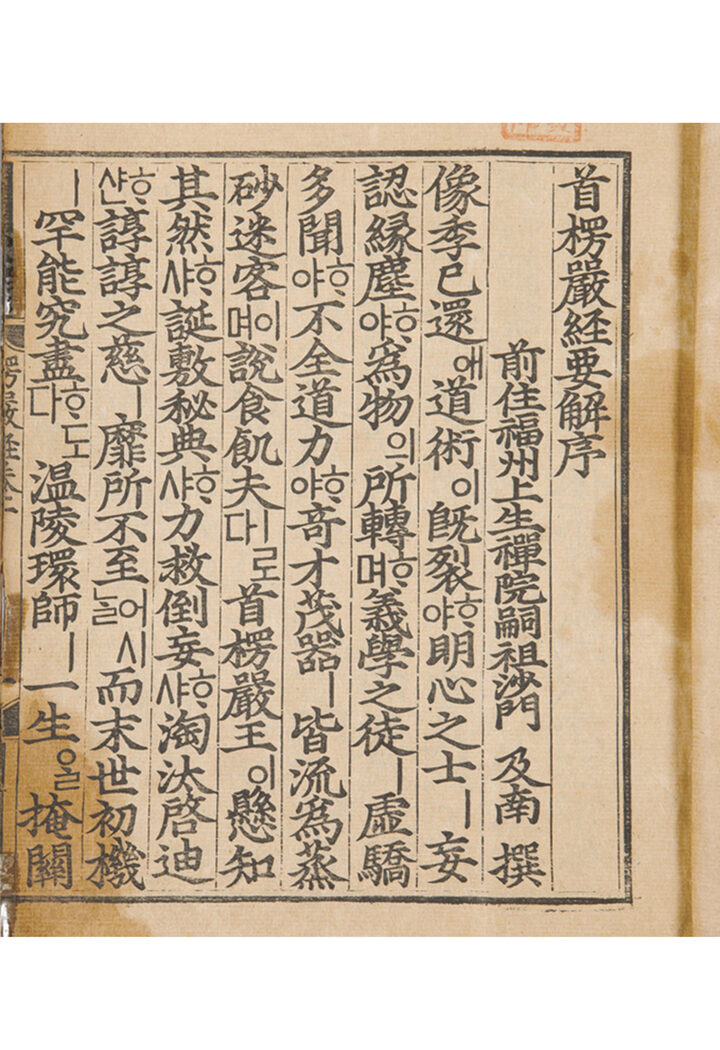 首楞嚴經要解序
前住福州上生禪院嗣祖沙門 及南 撰
像季已還애道術이旣裂ᄒᆞ야明心之士ㅣ妄
認緣塵ᄒᆞ야爲物의所轉ᄒᆞ며義學之徒ㅣ虛驕
多聞ᄒᆞ야不全道力ᄒᆞ야竒才茂器ㅣ皆流爲蒸
砂迷客이며說食飢夫ㅣ로다首楞嚴王이懸知
其然ᄒᆞ샤誕敷秘典ᄒᆞ샤力救倒妄ᄒᆞ샤淘汰啓迪
ᄒᆞ샨諄諄之慈ㅣ靡所不至어시늘而末世初機
ㅣ罕能究盡ᄒᆞ도다温陵環師ㅣ一生ᄋᆞᆯ掩關
楞嚴經